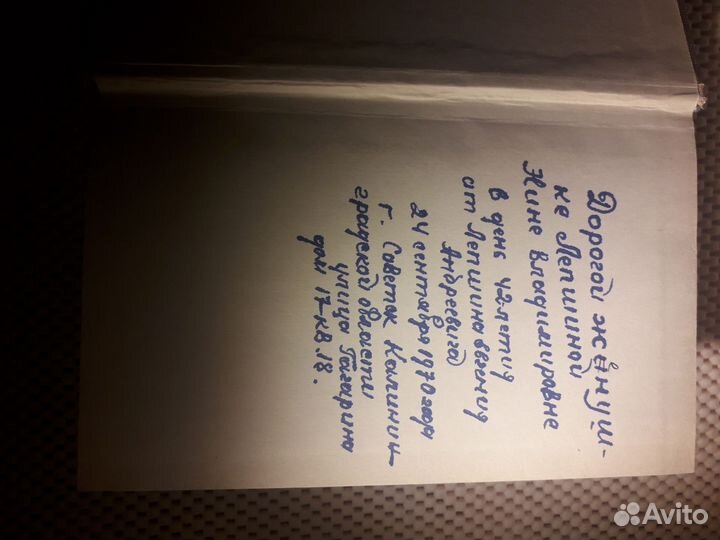 Дорогой жёнуш-
ке Лепшиной
Нине владимировне
в день 42-летия
от Лепшина Евгения
Андреевича
24 сентября 1970 года
г. Советск Калинин-
градской области
улица Гагарина
дом 17-кв. 18.
Avito